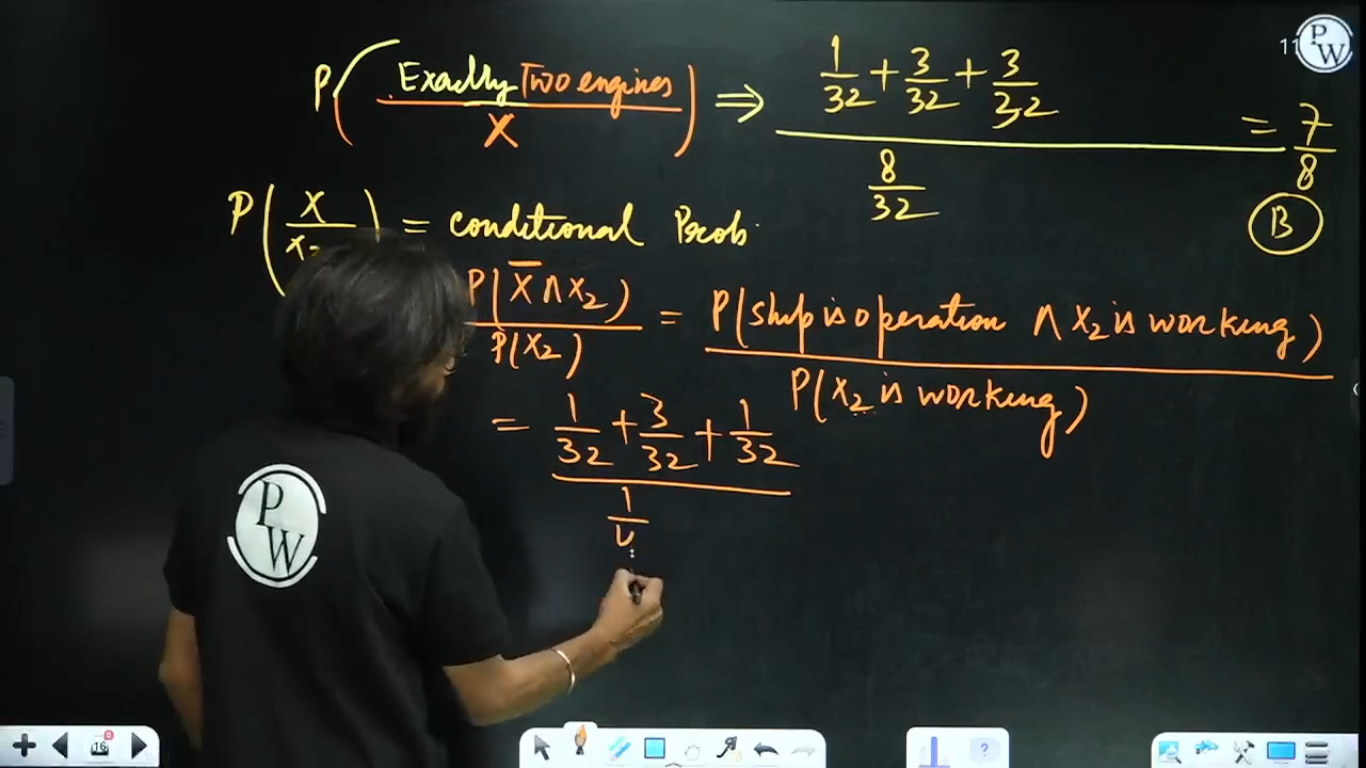 P( Exactly Two engines / X ) ⇒ (1/32 + 3/32 + 3/32) / (8/32) = 7/8
11
PW
B
P( X / X2 ) = conditional Prob.
P( X̄ ∧ X2 ) / P( X2 ) = P( ship is operation ∧ X2 is working ) / P( X2 is working )
= (1/32 + 3/32 + 1/32) / (1/
PW
16